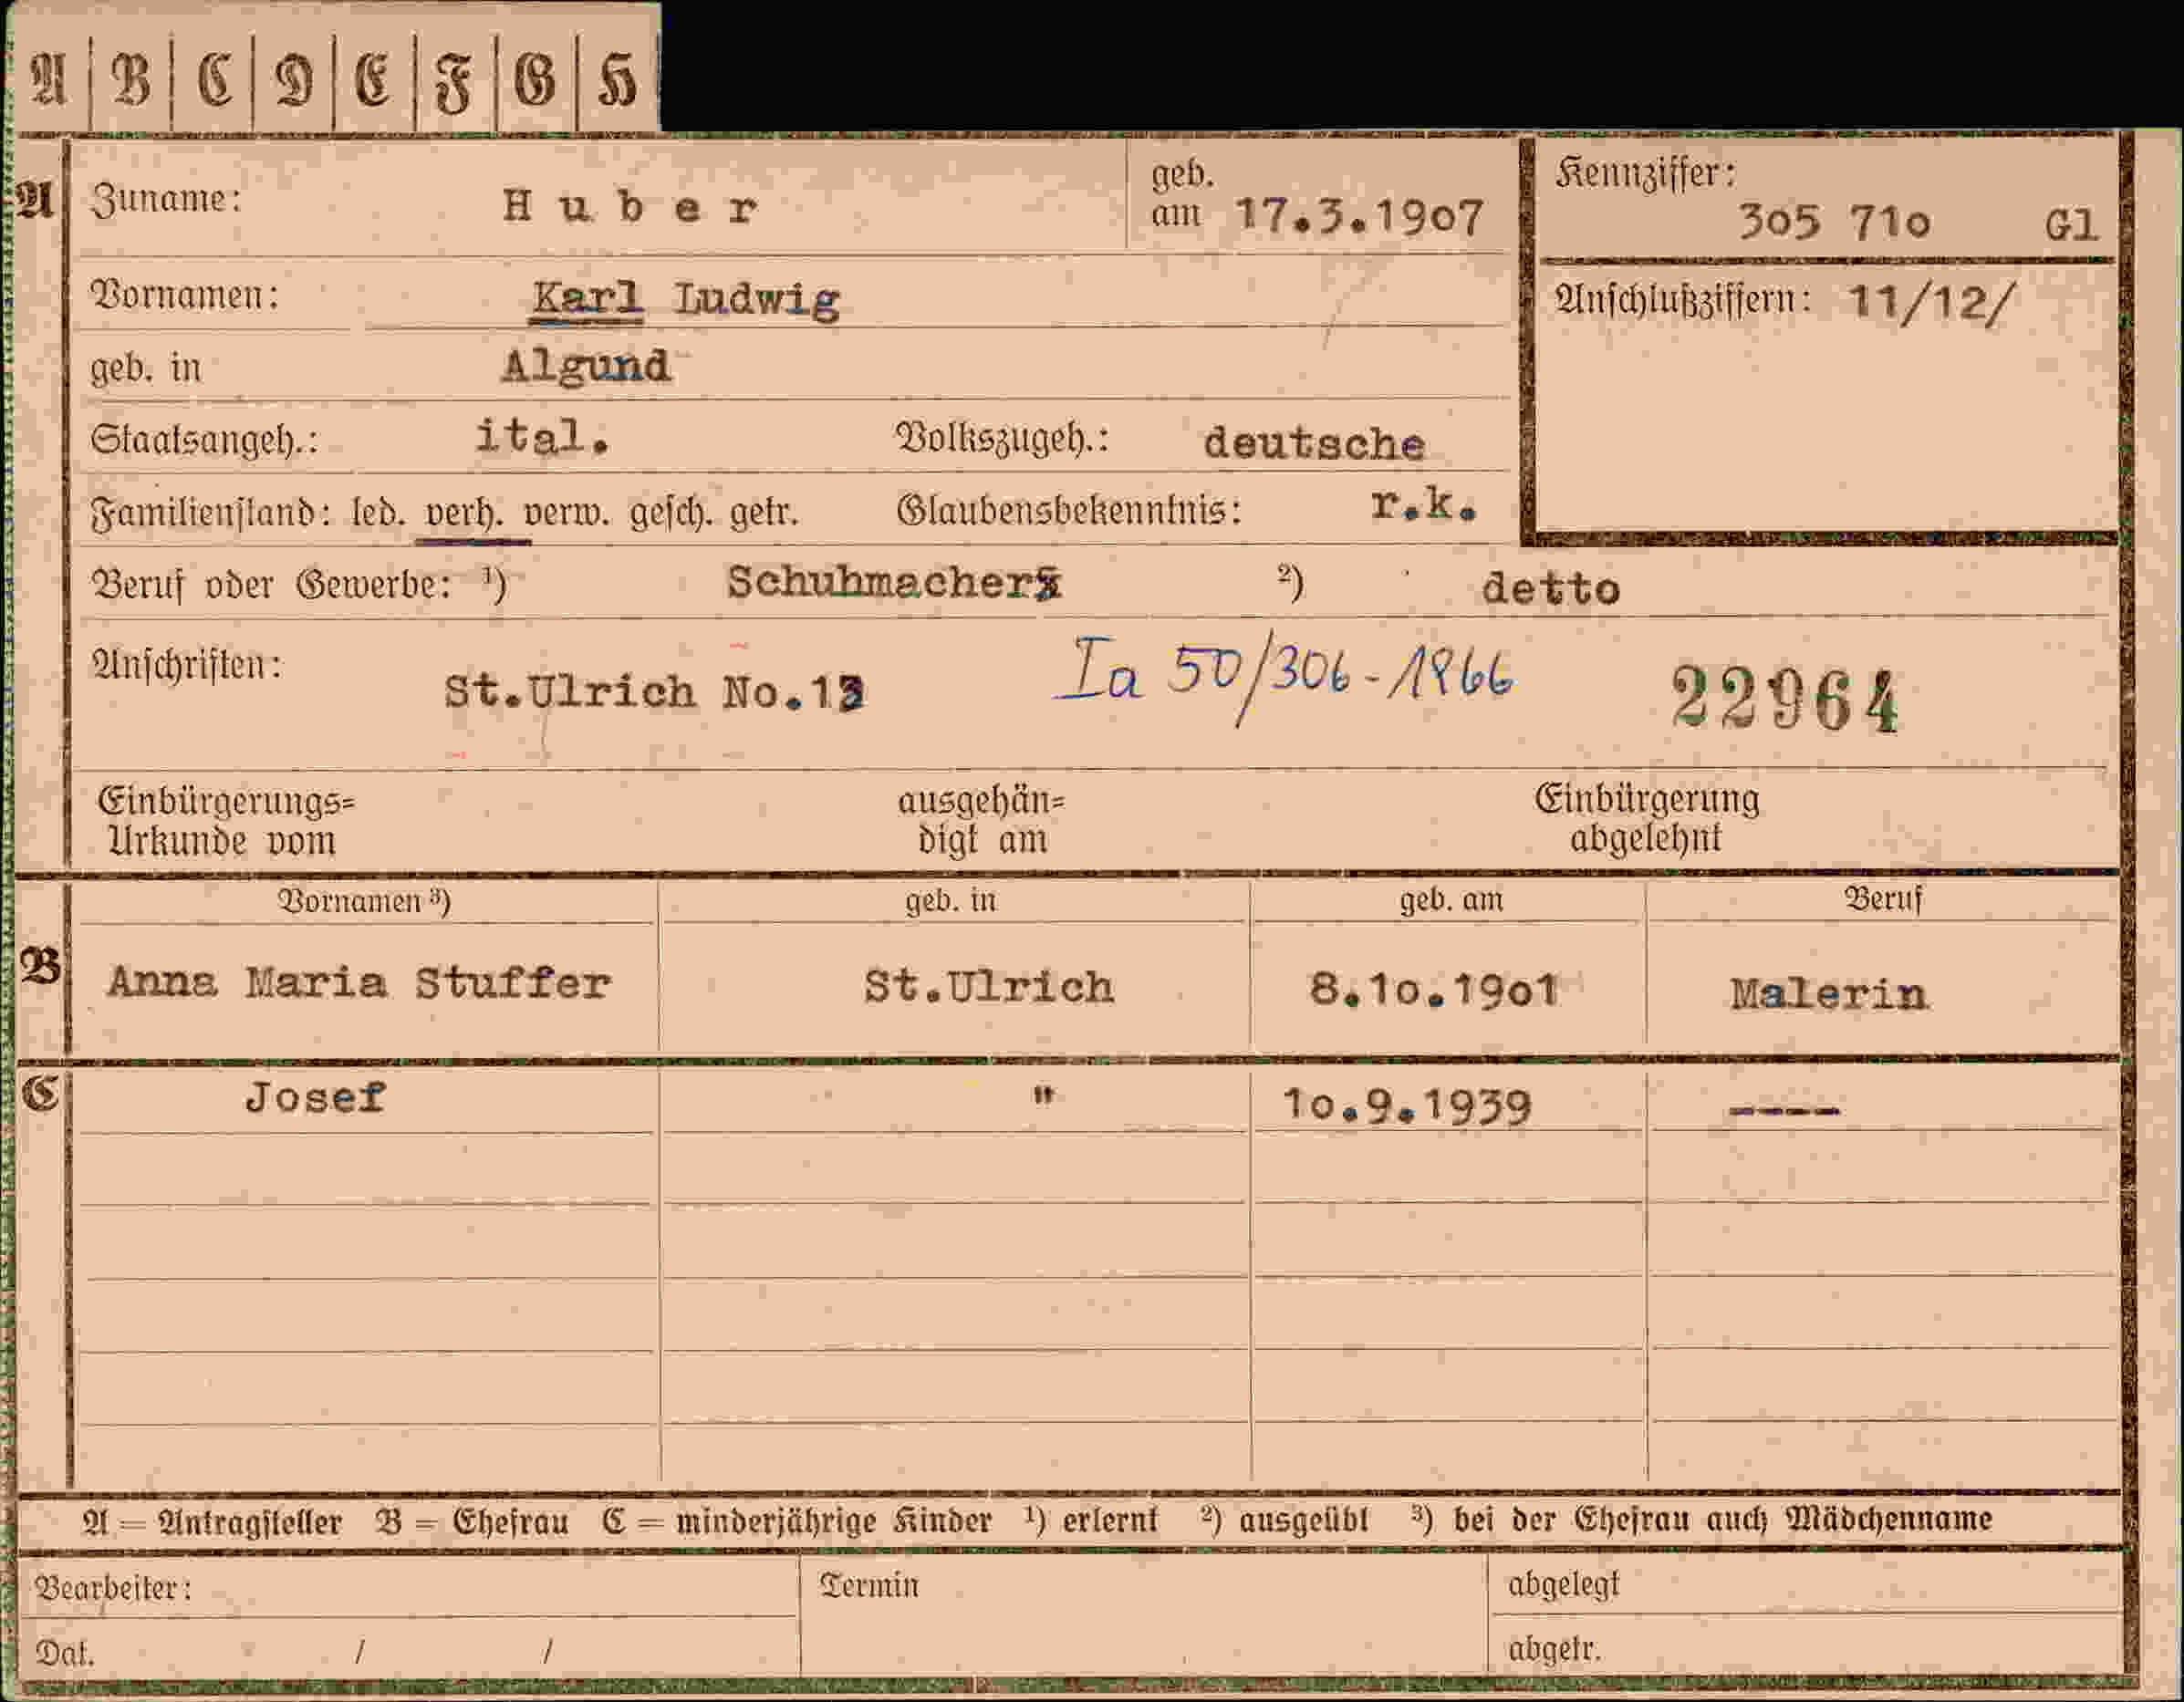 A B C D E F G H
A Zuname: Huber geb. am 17.3.1907 Kennziffer: 305 710 Gl
Vornamen: Karl Ludwig Anschlußziffern: 11/12/
geb. in Algund
Staatsangeh.: ital. Volkszugeh.: deutsche
Familienstand: led. verh. verw. gesch. getr. Glaubensbekenntnis: r.k.
Beruf oder Gewerbe: ¹) Schuhmacher ²) detto
Anschriften: St.Ulrich No. Ia 50/306-1966 22964
Einbürgerungs= ausgehän= Einbürgerung
Urkunde vom digt am abgelehnt
Vornamen ³) geb. in geb. am Beruf
B Anna Maria Stuffer St.Ulrich 8.10.1901 Malerin
C Josef " 10.9.1939 ----
A = Antragsteller B = Ehefrau C = minderjährige Kinder ¹) erlernt ²) ausgeübt ³) bei der Ehefrau auch Mädchenname
Bearbeiter: Termin abgelegt
Dat. / / abgetr.